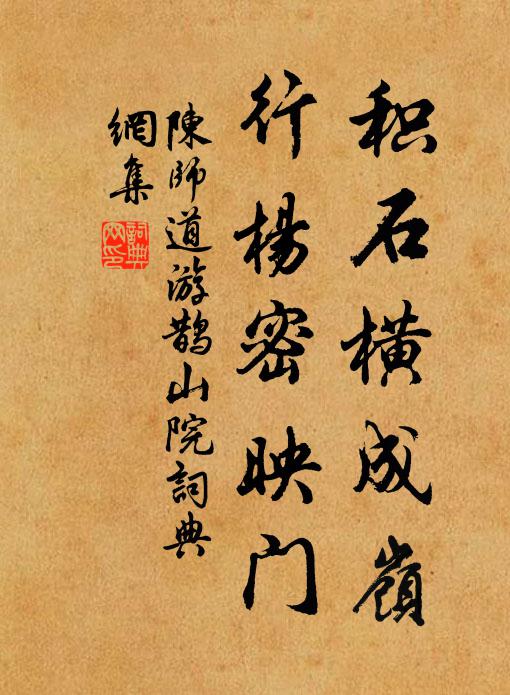 积石横成嶺
行楊密映门
陳師道游鵲山院詞典
網集
詞典
网印